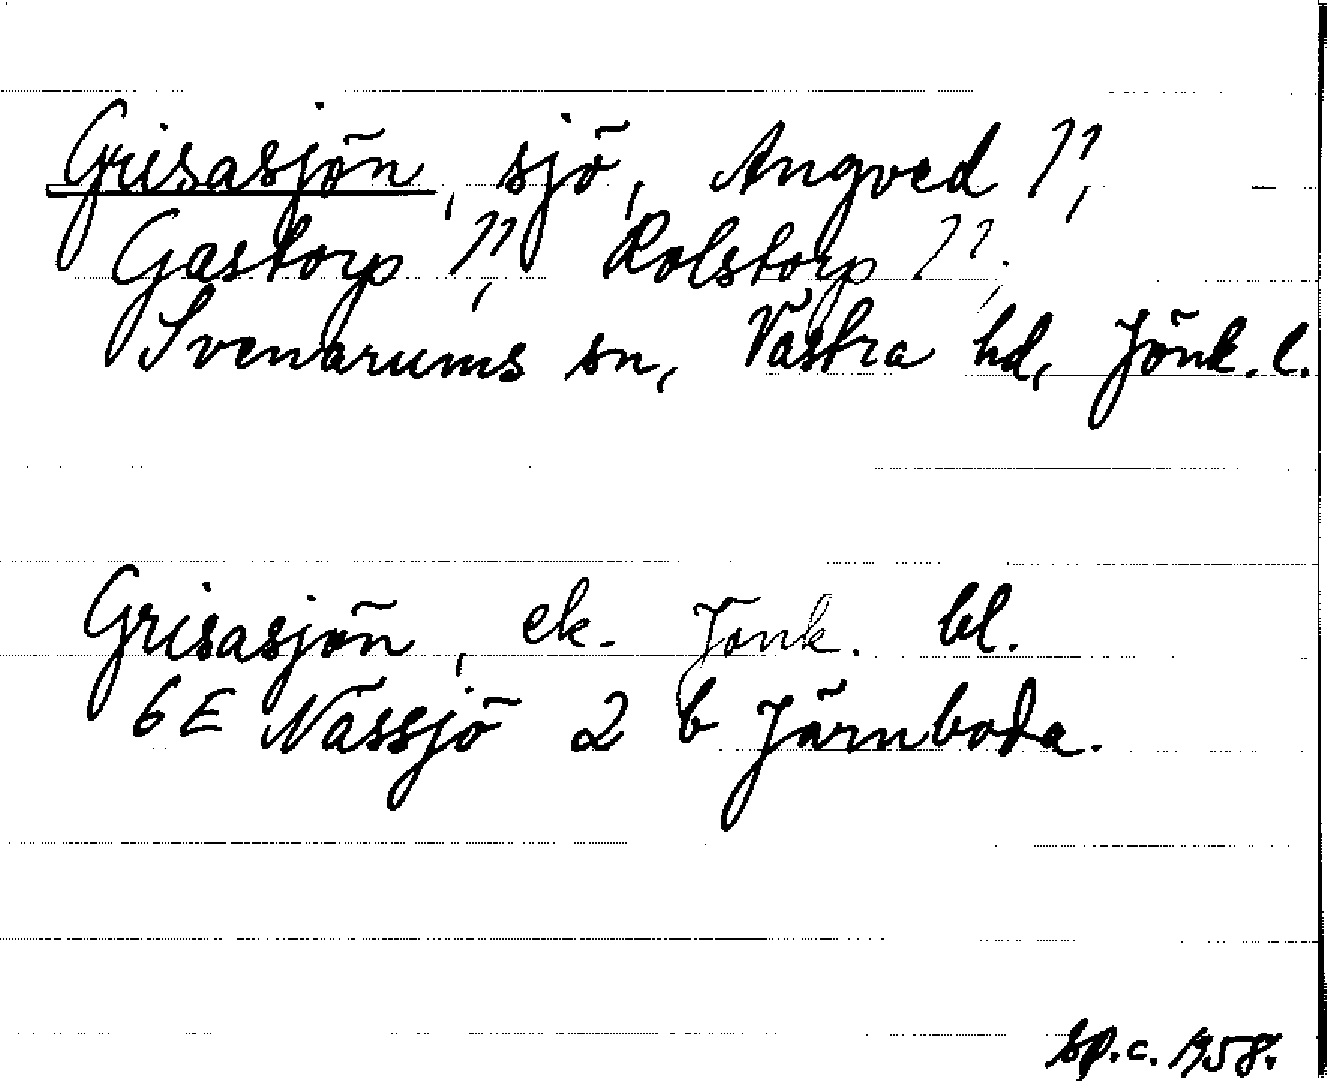 Grisasjön, sjö, Angved ??,
Gastorp ??, Rolstorp ??,
Svenarums sn, Västra hd, Jönk. l.
Grisasjön, ek. Jönk. bl.
6E Nässjö 2 b Järnboda.
Sp.c. 1958.